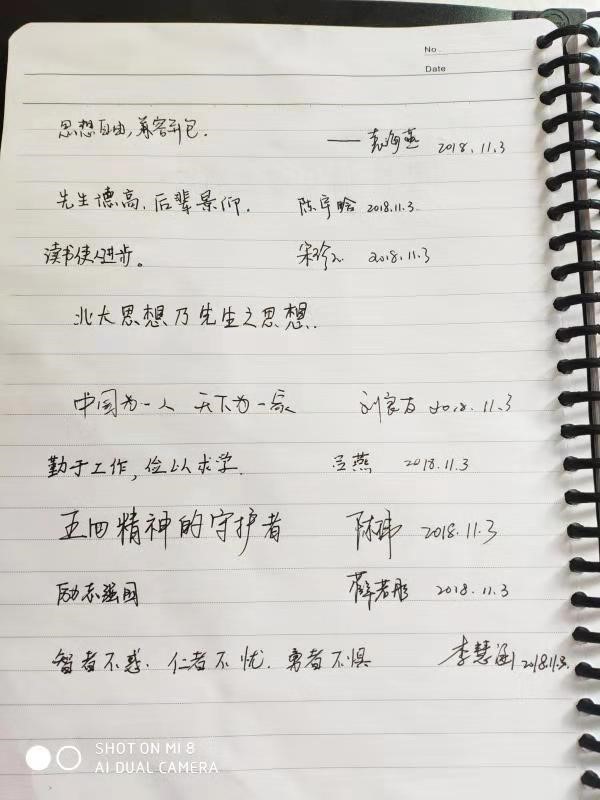 No.
Date
思想自由,兼容并包. ——袁海燕 2018.11.3
先生德高,后辈景仰. 陈宇晗 2018.11.3
读书使人进步。 宋珍 2018.11.3
北大思想乃先生之思想.
中国为一人 天下为一家 刘家 2018.11.3
勤于工作,俭以求学. 吕燕 2018.11.3
五四精神的守护者 陈玮 2018.11.3
励志强国 薛若彤 2018.11.3
智者不惑.仁者不忧.勇者不惧 李慧涵 2018.11.3.
SHOT ON MI 8
AI DUAL CAMERA